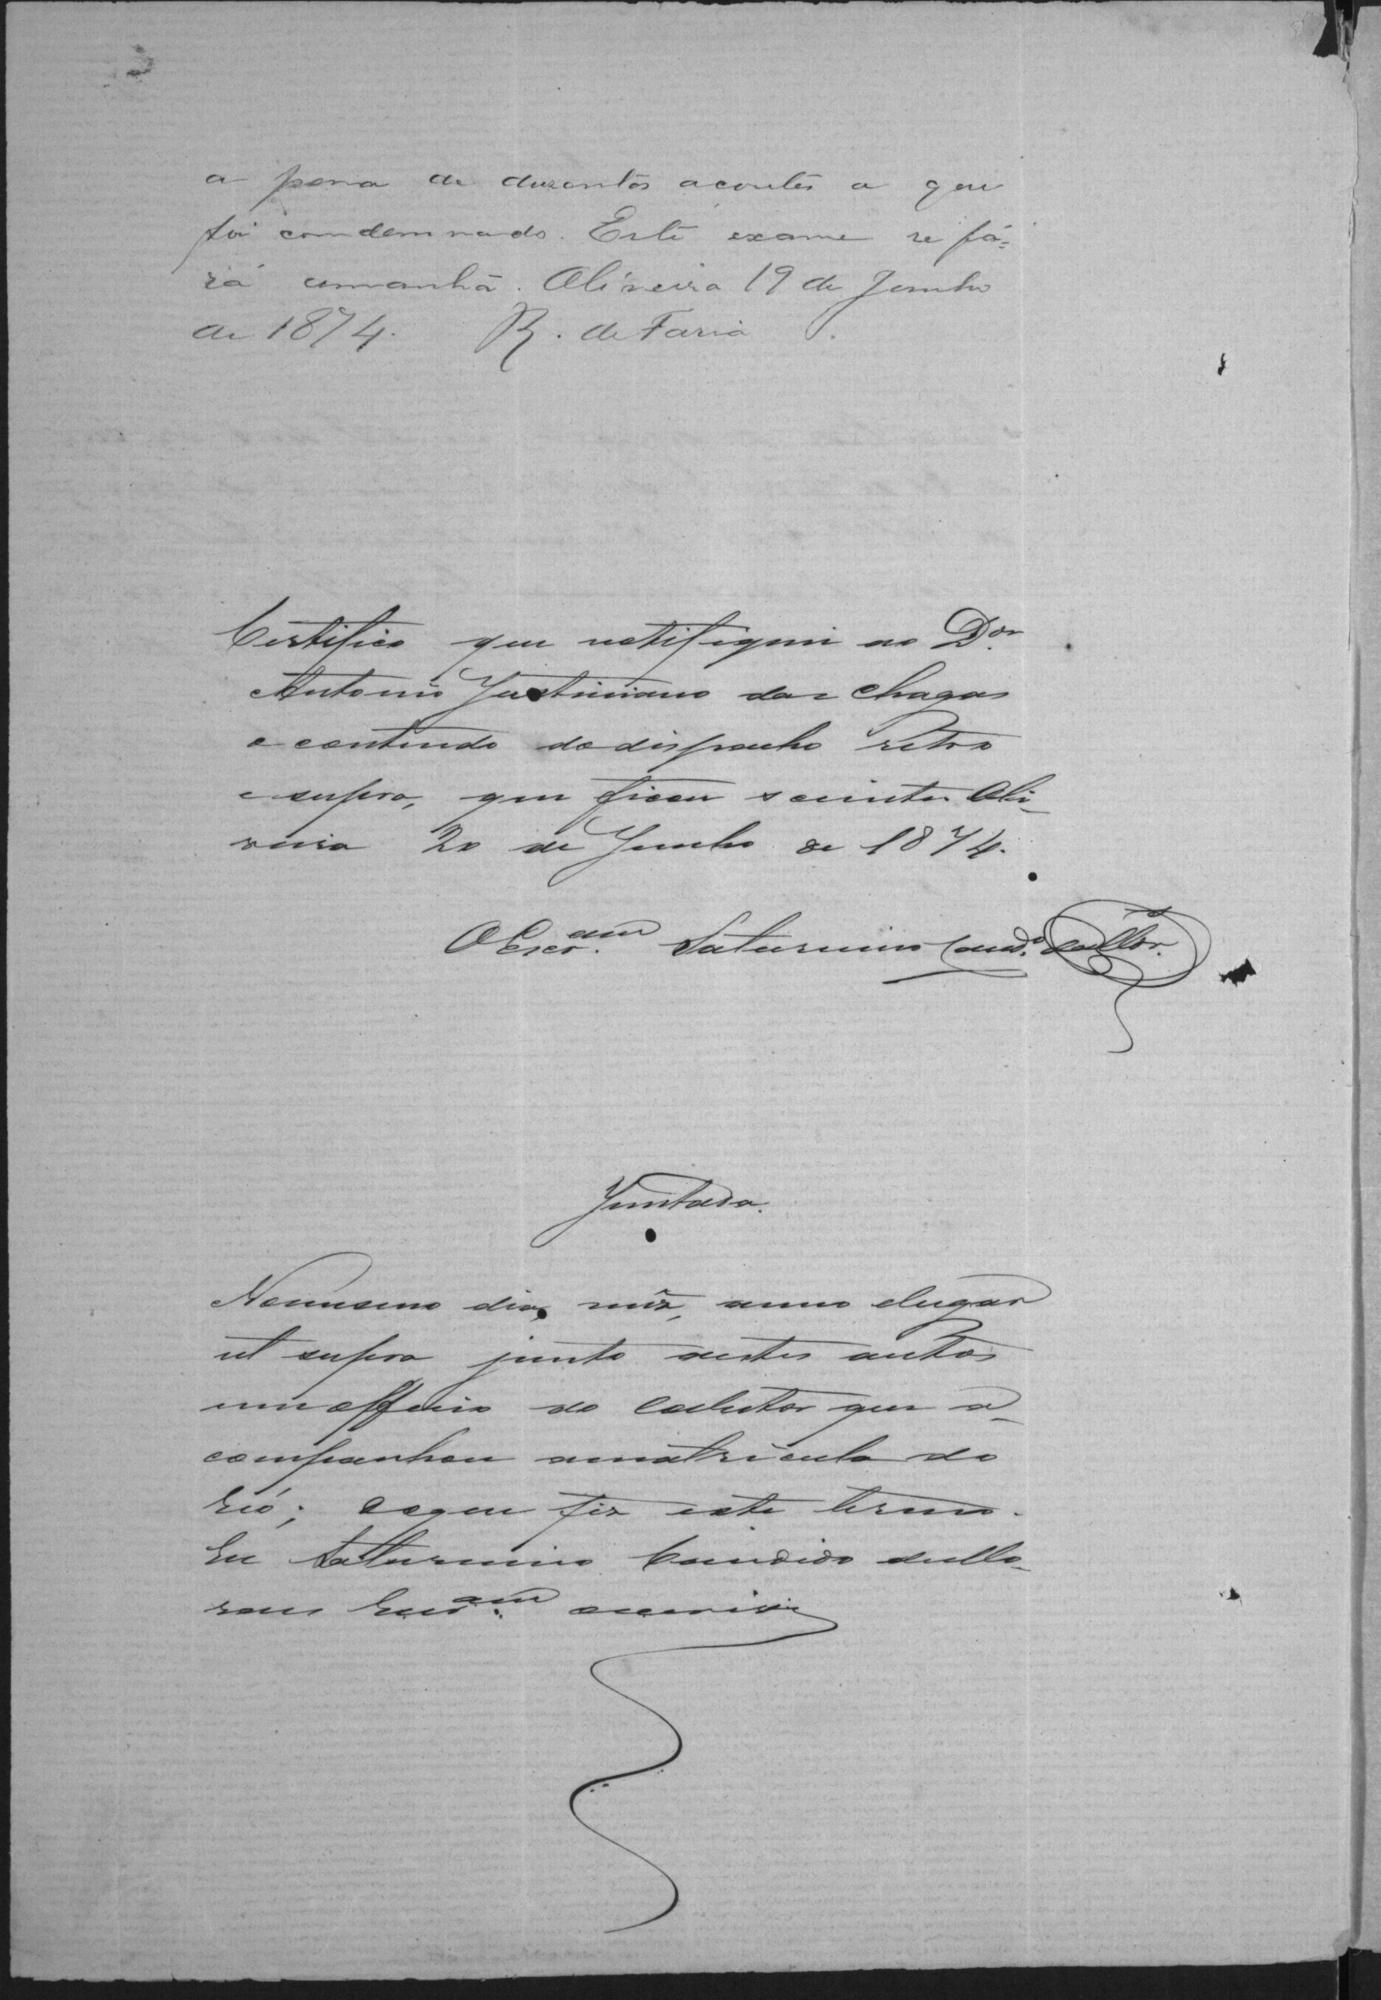 a pena de duzentos acoutes a que
foi condemnado. Este exame se fa-
rá amanhã. Oliveira 19 de Junho
de 1874. R. de Faria.
Certifico que notifiquei ao Dor.
Antonio Justiniano das Chagas
o contendo do dispacho retro
e supra, que ficou sciente. Oli-
veira 20 de Junho de 1874.
O Escram. Saturnino Candº.
Juntada.
No mesmo dia, mez, anno elugar
ut supra junto nestes autos
um officio do Colletor que a-
companhou amatricula do
reó; do que fiz este termo.
Eu Saturnino Candido
Escram. escrivi